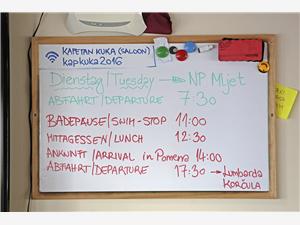 KAPETAN KUKA (SALOON)
kapkuka2016
Dienstag/Tuesday → NP Mljet
ABFAHRT/DEPARTURE 7:30
BADEPAUSE/SWIM-STOP 11:00
MITTAGESSEN/LUNCH 12:30
ANKUNFT/ARRIVAL in Pomena 14:00
ABFAHRT/DEPARTURE 17:30 → Lumbarda
KORČULA